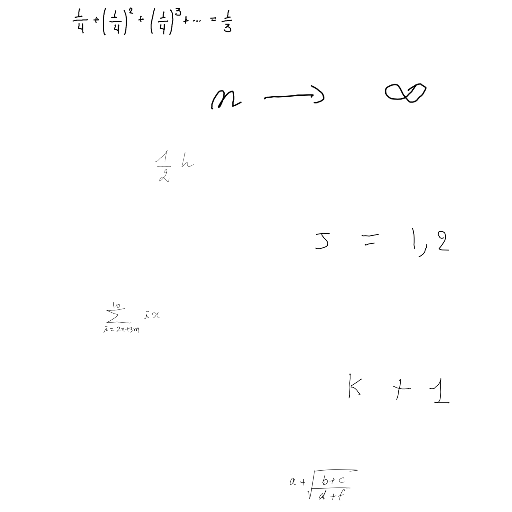 \frac{1}{4} + \left(\frac{1}{4}\right)^2 + \left(\frac{1}{4}\right)^3 + \cdots = \frac{1}{3}
n \longrightarrow \infty
\frac{1}{2} h
J = 1, 2
\sum_{i=2n+3m}^{10} ix
k + 1
a + \sqrt{\frac{b+c}{d+f}}